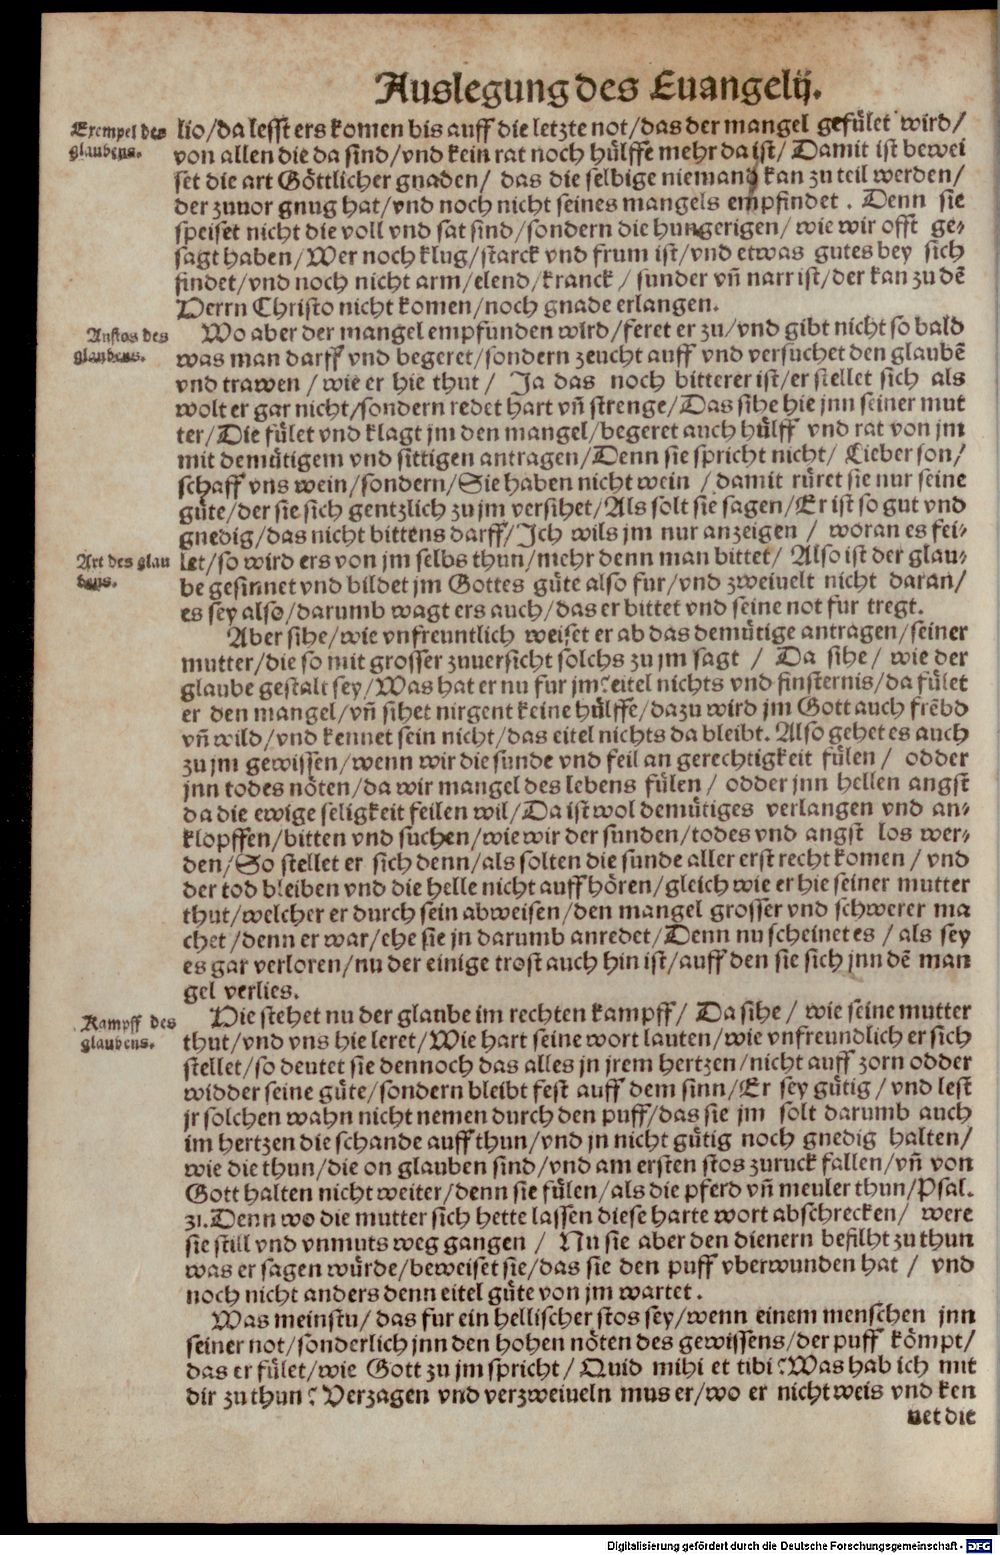 Auslegung des Euangelij.
Exempel des
glaubens.
lio/da lesst ers komen bis auff die letzte not/das der mangel gefület wird/
von allen die da sind/vnd kein rat noch hülffe mehr da ist/ Damit ist bewei
set die art Göttlicher gnaden/ das die selbige niemand kan zu teil werden/
der zuuor gnug hat/vnd noch nicht seines mangels empfindet. Denn sie
speiset nicht die voll vnd sat sind/sondern die hungerigen/ wie wir offt ge-
sagt haben/Wer noch klug/starck vnd frum ist/vnd etwas gutes bey sich
findet/vnd noch nicht arm/elend/kranck/ sunder vñ narr ist/der kan zu dẽ
Herrn Christo nicht komen/noch gnade erlangen.
Anstos des
glaubens.
Wo aber der mangel empfunden wird/feret er zu/vnd gibt nicht so bald
was man darff vnd begeret/sondern zeucht auff vnd versuchet den glaubẽ
vnd trawen/wie er hie thut/ Ja das noch bitterer ist/er stellet sich als
wolt er gar nicht/sondern redet hart vñ strenge/Das sihe hie jnn seiner mut
ter/Die fület vnd klagt jm den mangel/begeret auch hülff vnd rat von jm
mit demütigem vnd sittigen antragen/Denn sie spricht nicht/ Lieber son/
schaff vns wein/sondern/Sie haben nicht wein/damit rüret sie nur seine
güte/der sie sich gentzlich zu jm versihet/Als solt sie sagen/Er ist so gut vnd
gnedig/das nicht bittens darff/Ich wils jm nur anzeigen/ woran es fei-
Art des glau
bens.
let/so wird ers von jm selbs thun/mehr denn man bittet/ Also ist der glau-
be gesinnet vnd bildet jm Gottes güte also fur/vnd zweiuelt nicht daran/
es sey also/darumb wagt ers auch/das er bittet vnd seine not fur tregt.
Aber sihe/wie vnfreuntlich weiset er ab das demütige antragen/seiner
mutter/die so mit grosser zuuersicht solchs zu jm sagt/ Da sihe/ wie der
glaube gestalt sey/Was hat er nu fur jm? eitel nichts vnd finsternis/da fület
er den mangel/vñ sihet nirgent keine hülffe/dazu wird jm Gott auch frẽbd
vñ wild/vnd kennet sein nicht/das eitel nichts da bleibt. Also gehet es auch
zu jm gewissen/wenn wir die sunde vnd feil an gerechtigkeit fülen/ odder
jnn todes nöten/da wir mangel des lebens fülen/ odder jnn hellen angst
da die ewige seligkeit feilen wil/Da ist wol demütiges verlangen vnd an-
klopffen/bitten vnd suchen/wie wir der sunden/todes vnd angst los wer-
den/So stellet er sich denn/als solten die sunde aller erst recht komen/ vnd
der tod bleiben vnd die helle nicht auffhören/gleich wie er hie seiner mutter
thut/welcher er durch sein abweisen/den mangel grosser vnd schwerer ma
chet/denn er war/ehe sie jn darumb anredet/Denn nu scheinet es/ als sey
es gar verloren/nu der einige trost auch hin ist/auff den sie sich jnn dẽ man
gel verlies.
Kampff des
glaubens.
Hie stehet nu der glaube im rechten kampff/ Da sihe/ wie seine mutter
thut/vnd vns hie leret/Wie hart seine wort lauten/wie vnfreundlich er sich
stellet/so deutet sie dennoch das alles jn jrem hertzen/nicht auff zorn odder
widder seine güte/sondern bleibt fest auff dem sinn/Er sey gütig/vnd lest
jr solchen wahn nicht nemen durch den puff/das sie jm solt darumb auch
im hertzen die schande auffthun/vnd jn nicht gütig noch gnedig halten/
wie die thun/die on glauben sind/vnd am ersten stos zuruck fallen/vñ von
Gott halten nicht weiter/denn sie fülen/als die pferd vñ meuler thun/Psal.
31. Denn wo die mutter sich hette lassen diese harte wort abschrecken/ were
sie still vnd vnmuts weg gangen/ Nu sie aber den dienern befilht zu thun
was er sagen würde/beweiset sie/das sie den puff vberwunden hat/ vnd
noch nicht anders denn eitel güte von jm wartet.
Was meinstu/das fur ein hellischer stos sey/wenn einem menschen jnn
seiner not/sonderlich jnn den hohen nöten des gewissens/der puff kömpt/
das er fület/wie Gott zu jm spricht/ Quid mihi et tibi? Was hab ich mit
dir zu thun? Verzagen vnd verzweiueln mus er/wo er nicht weis vnd ken
net die
Digitalisierung gefördert durch die Deutsche Forschungsgemeinschaft - DFG